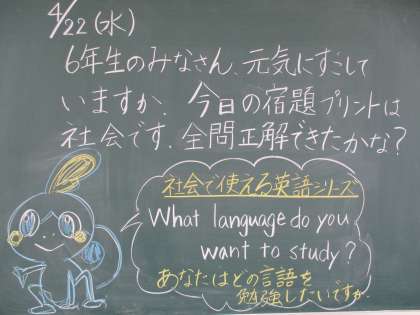 4/22(水)
6年生のみなさん、元気にすごして
いますか。今日の宿題プリントは
社会です。全問正解できたかな?
社会で使える英語シリーズ
What language do you
want to study?
あなたはどの言語を
勉強したいですか。